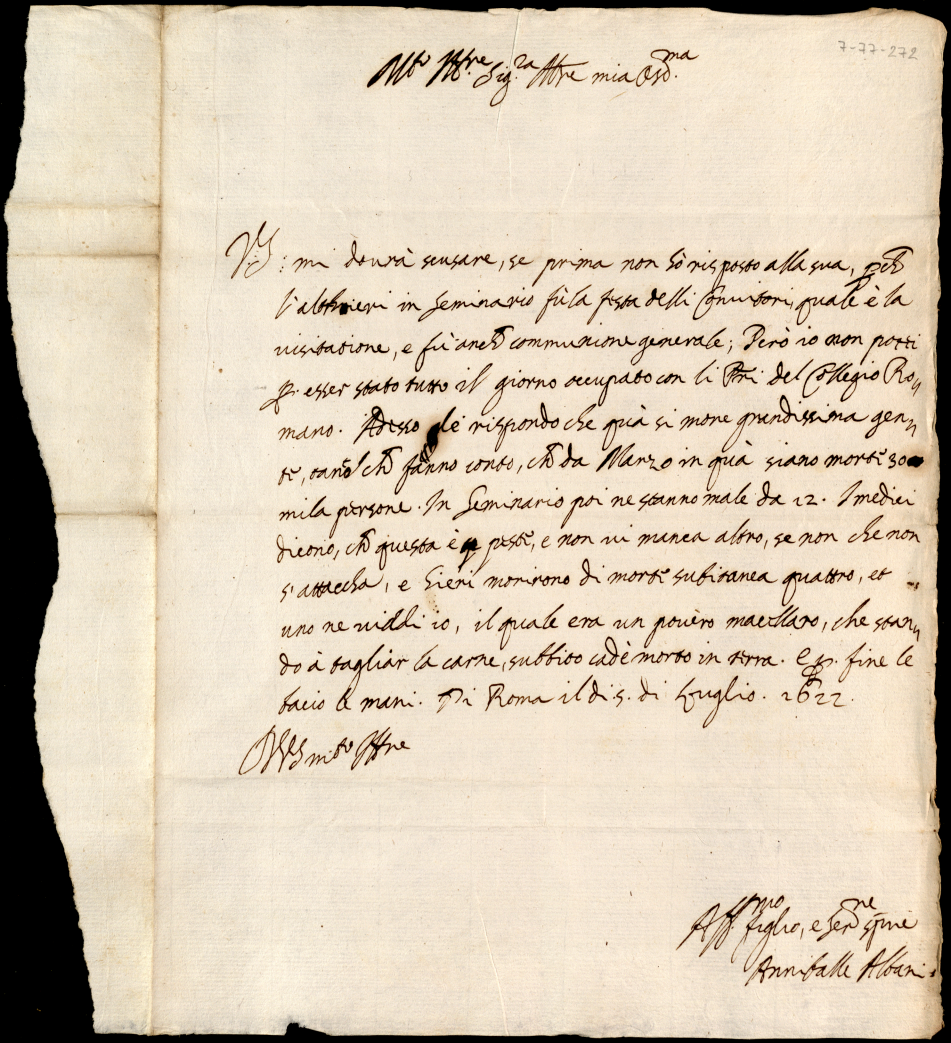 7-77-272
Mto Illre Sigra Mre mia Ossma
VS: mi dovrà scusare, se prima non hò risposto alla sua, pchè
l'altrhieri in Seminario fù la festa delli Convittori, quale è la
visitatione, e fù anchè communione generale; Però io non potti
p. esser stato tutto il giorno occupato con li Pri del Collegio Ro„
mano. Adesso le rispondo che quà si more grandissima gen„
te, tanto chè fanno conto, chè da Marzo in quà siano morte 30
mila persone. In Seminario poi ne stanno male da 12. I medici
dicono, chè questa è peste, e non vi manca altro, se non che non
s'attaccha, e hieri morirono di morte subitanea quattro, et
uno ne viddi io, il quale era un povero macellaro, che stan„
do à tagliar la carne, subbito cadè morto in terra. E p. fine le
bacio le mani. Di Roma il di 5. di Luglio. 1622.
DVS mto Illre
Affmo figlio, e serne
Anniballe Albani